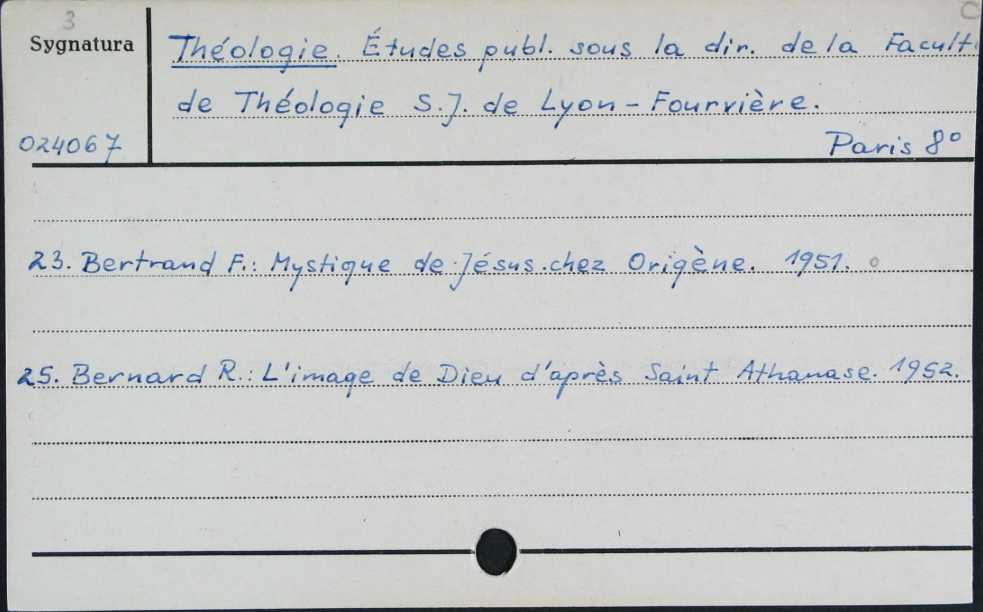 3
C
Sygnatura
Théologie. Études publ. sous la dir. de la Facult
de Théologie S.J. de Lyon - Fourvière.
024067
Paris 8°
23. Bertrand F.: Mystique de Jésus chez Origène. 1951.
25. Bernard R.: L'image de Dieu d'après Saint Athanase. 1952.